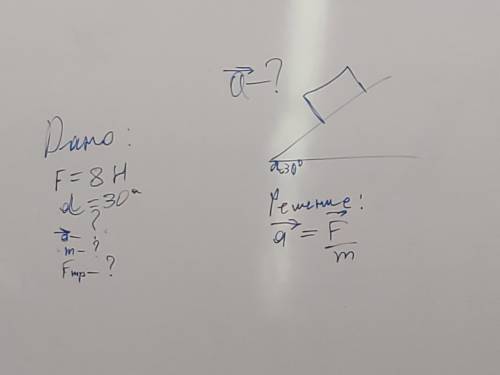 Дано:
F = 8 Н
α = 30°
a⃗ - ?
m - ?
Fтр - ?
a⃗ - ?
α 30°
Решение:
a⃗ = F⃗
m